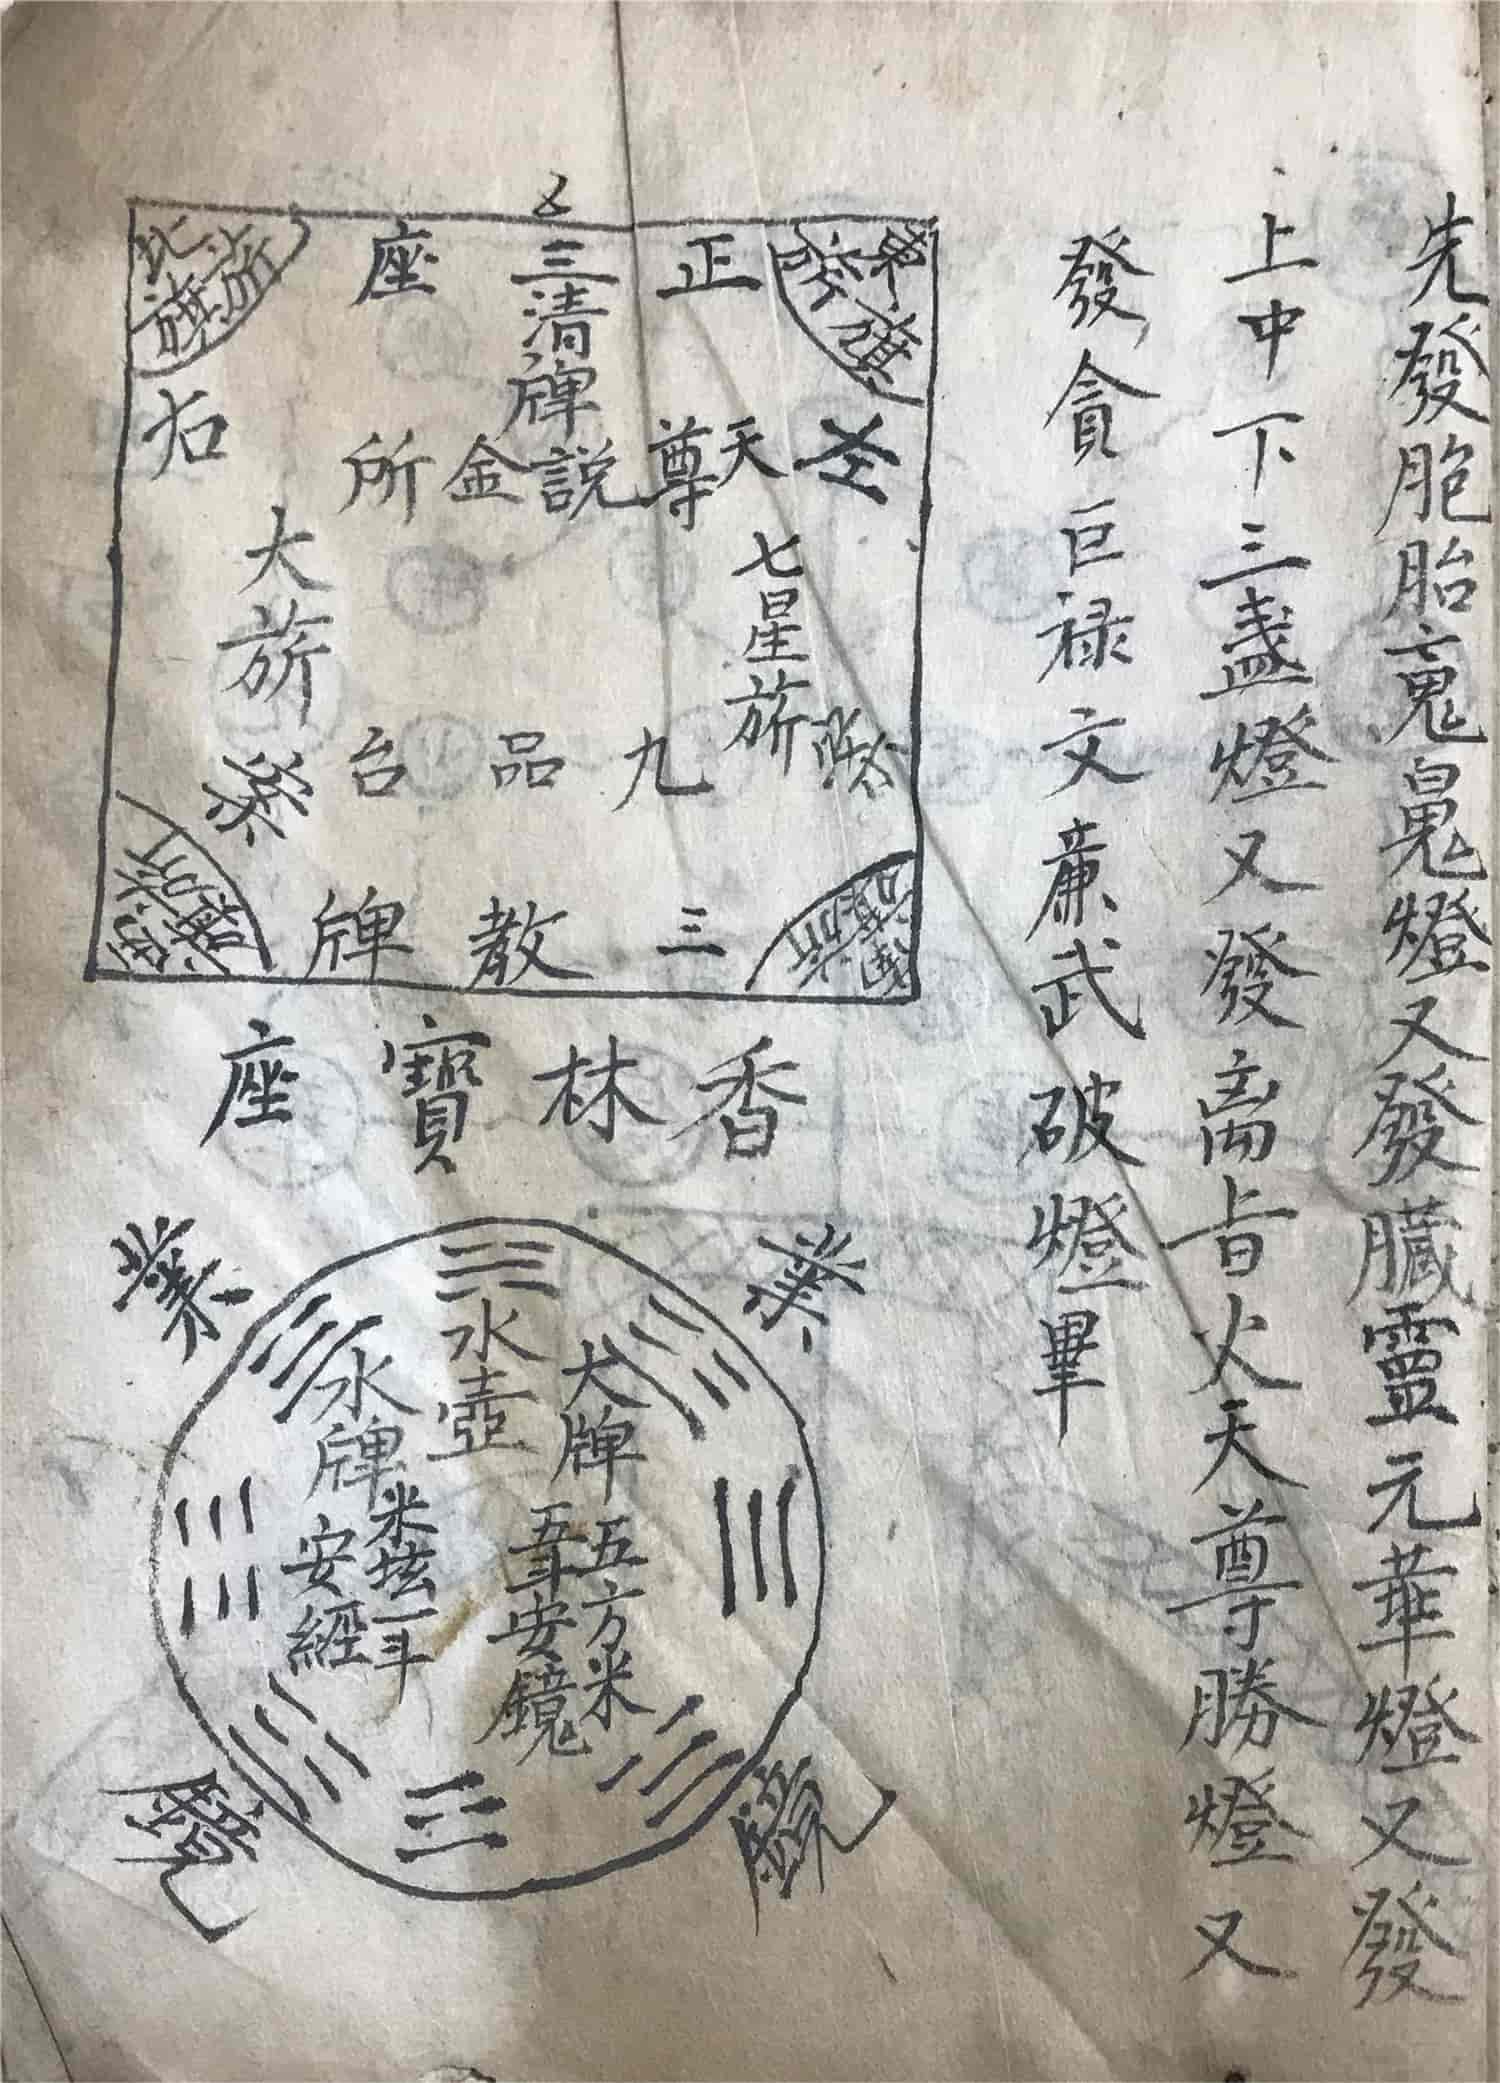 先發胞胎䰟鬼燈又發臟靈元華燈又發
上中下三盞燈又發离㫖火天尊勝燈又
發貪巨禄文亷武破燈畢
正三清牌座
天尊説金所
右
七星旂
大旂
九品台
三教牌
香林寳座
業
業
大牌
水壺
水牌
五方米
五斗安鏡
米垓一斗
安經
鏡